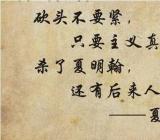 砍头不要紧，
只要主义真
杀了夏明翰，
还有后来人
——夏